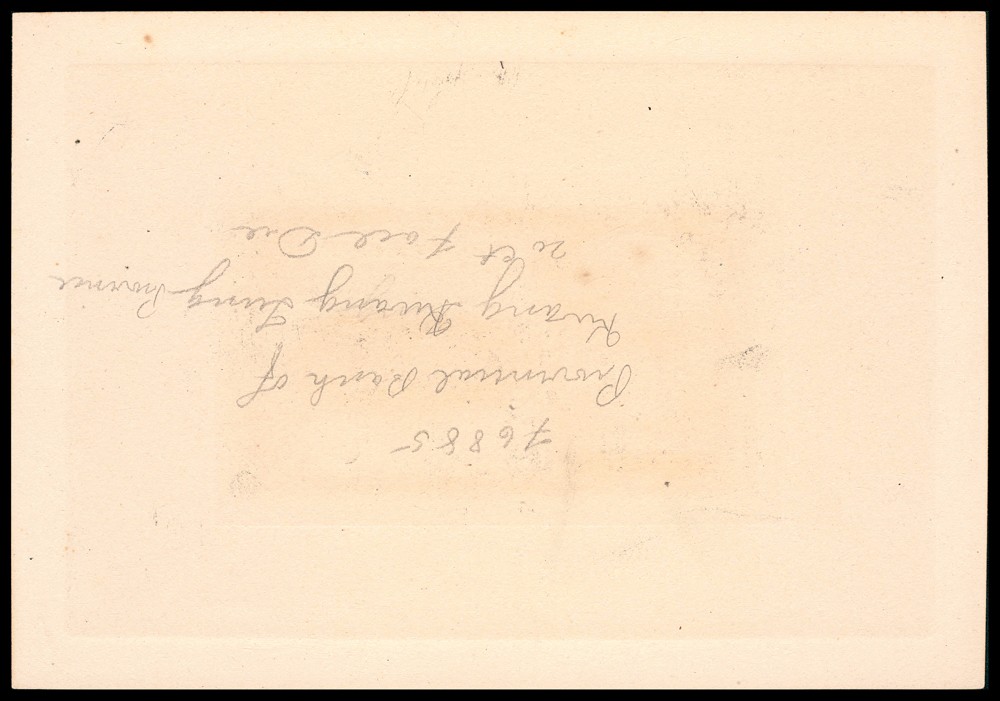 76885
Provincial Bank of
Kwang Kwang Tung Province
20 ct Face Die